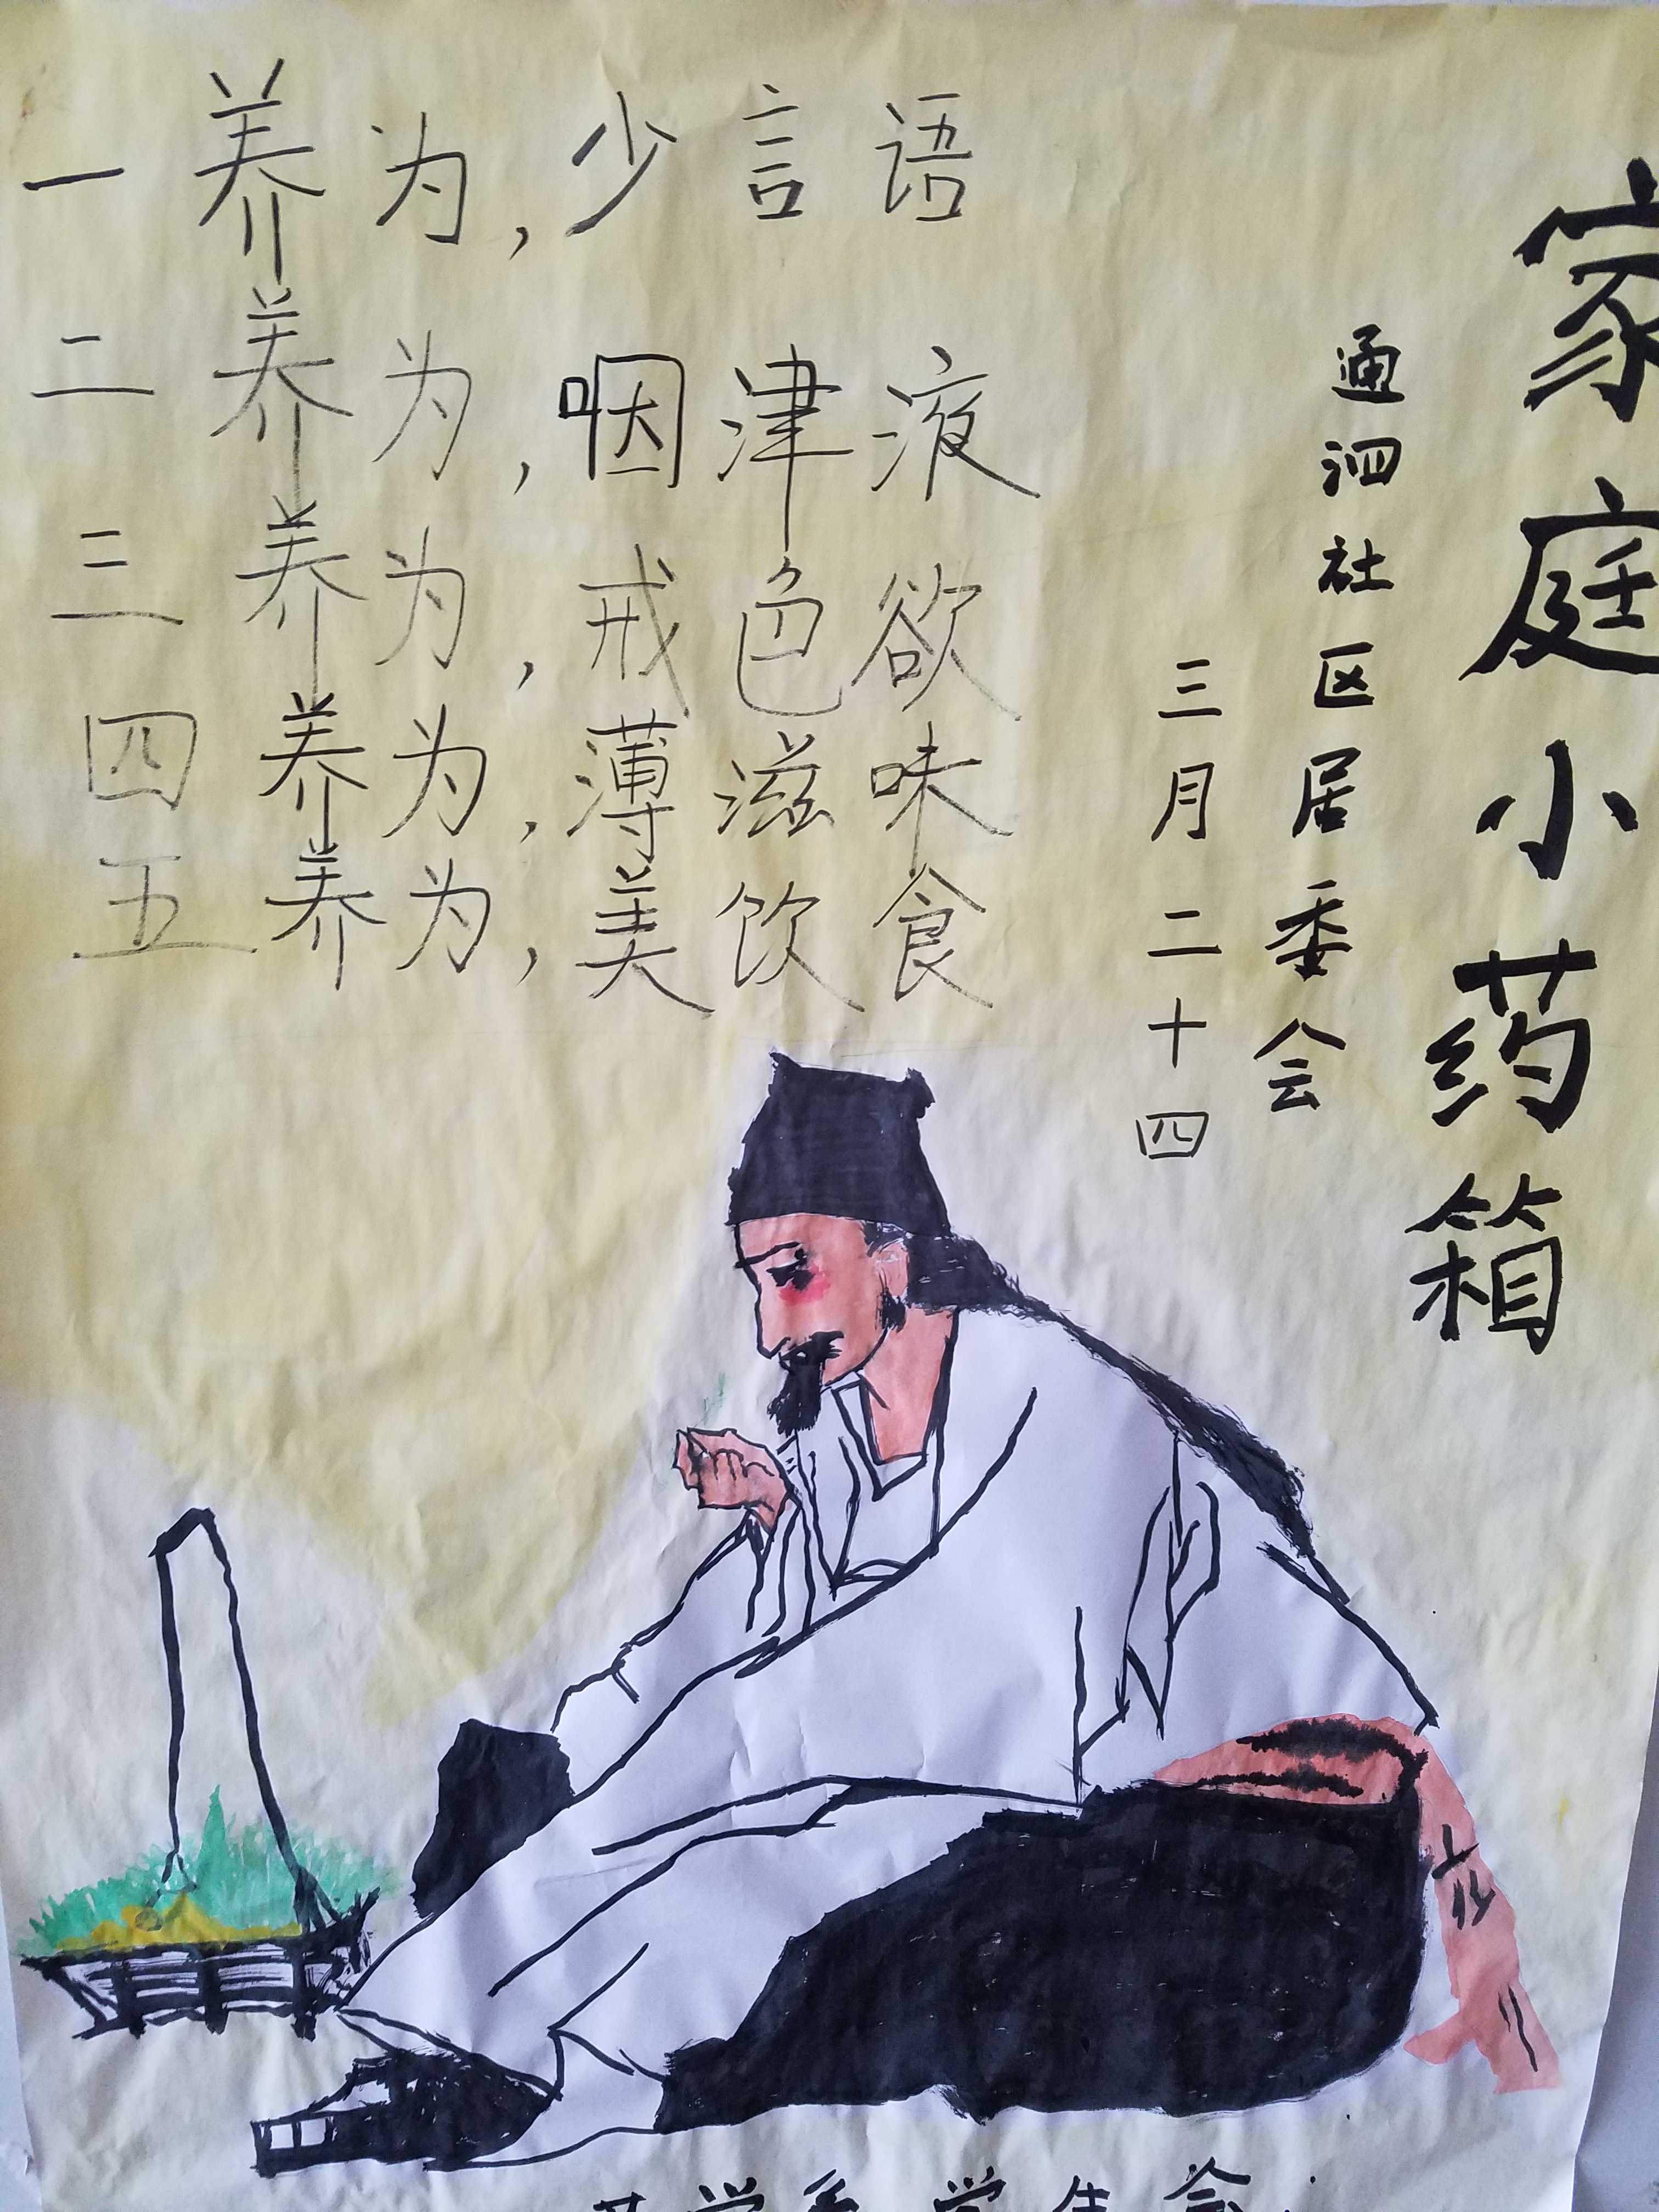 家庭小药箱
通泗社区居委会
三月二十四
一养为,少言语
二养为,咽津液
三养为,戒色欲
四养为,薄滋味
五养为,美饮食
学生会